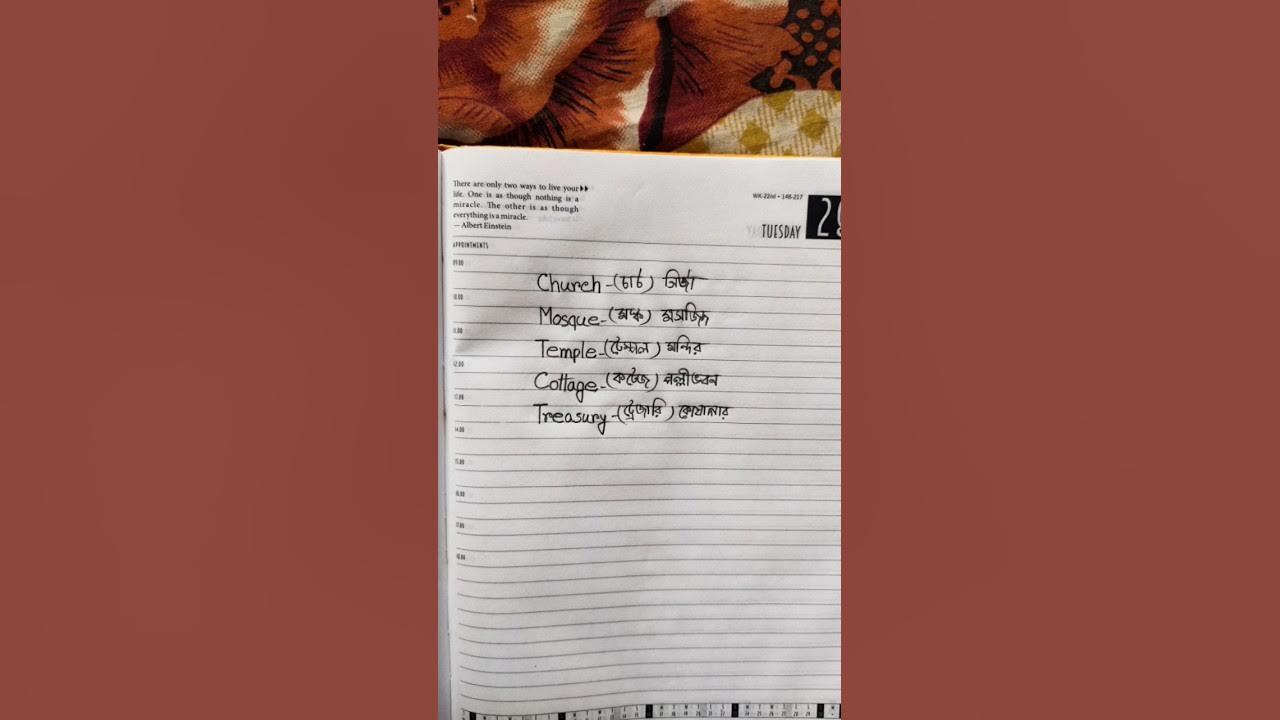 There are only two ways to live your
life. One is as though nothing is a
miracle. The other is as though
everything is a miracle.
— Albert Einstein
WK-22nd • 148-217
TUESDAY
APPOINTMENTS
09.00
Church - (চার্চ) গির্জা
10.00
Mosque - (মস্ক) মসজিদ
11.00
Temple - (টেম্পাল) মন্দির
12.00
Cottage - (কটেজ) পল্লীভবন
13.00
Treasury - (ট্রেজারি) কোষাগার
14.00
15.00
16.00
17.00
18.00